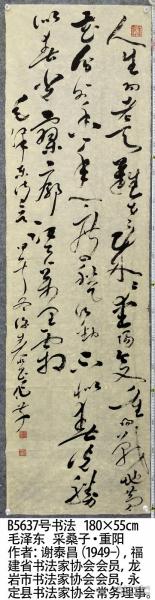 人生易老天難老歲歲重陽今又重陽戰地黃
花分外香一年一度秋風勁不似春光勝
似春光寥廓江天萬里霜
毛澤東詩
B5637号书法 180×55cm
毛泽东 采桑子·重阳
作者:谢泰昌(1949-),福
建省书法家协会会员,龙
岩市书法家协会会员,永
定县书法家协会常务理事。